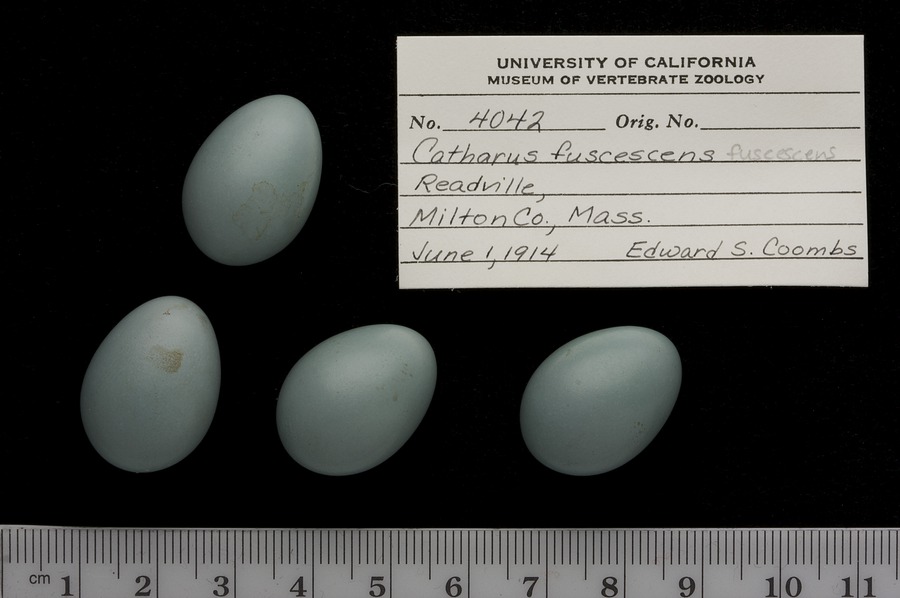 UNIVERSITY OF CALIFORNIA
MUSEUM OF VERTEBRATE ZOOLOGY
No. 4042 Orig. No.
Catharus fuscescens fuscescens
Readville,
Milton Co., Mass.
June 1, 1914 Edward S. Coombs
cm 1 2 3 4 5 6 7 8 9 10 11